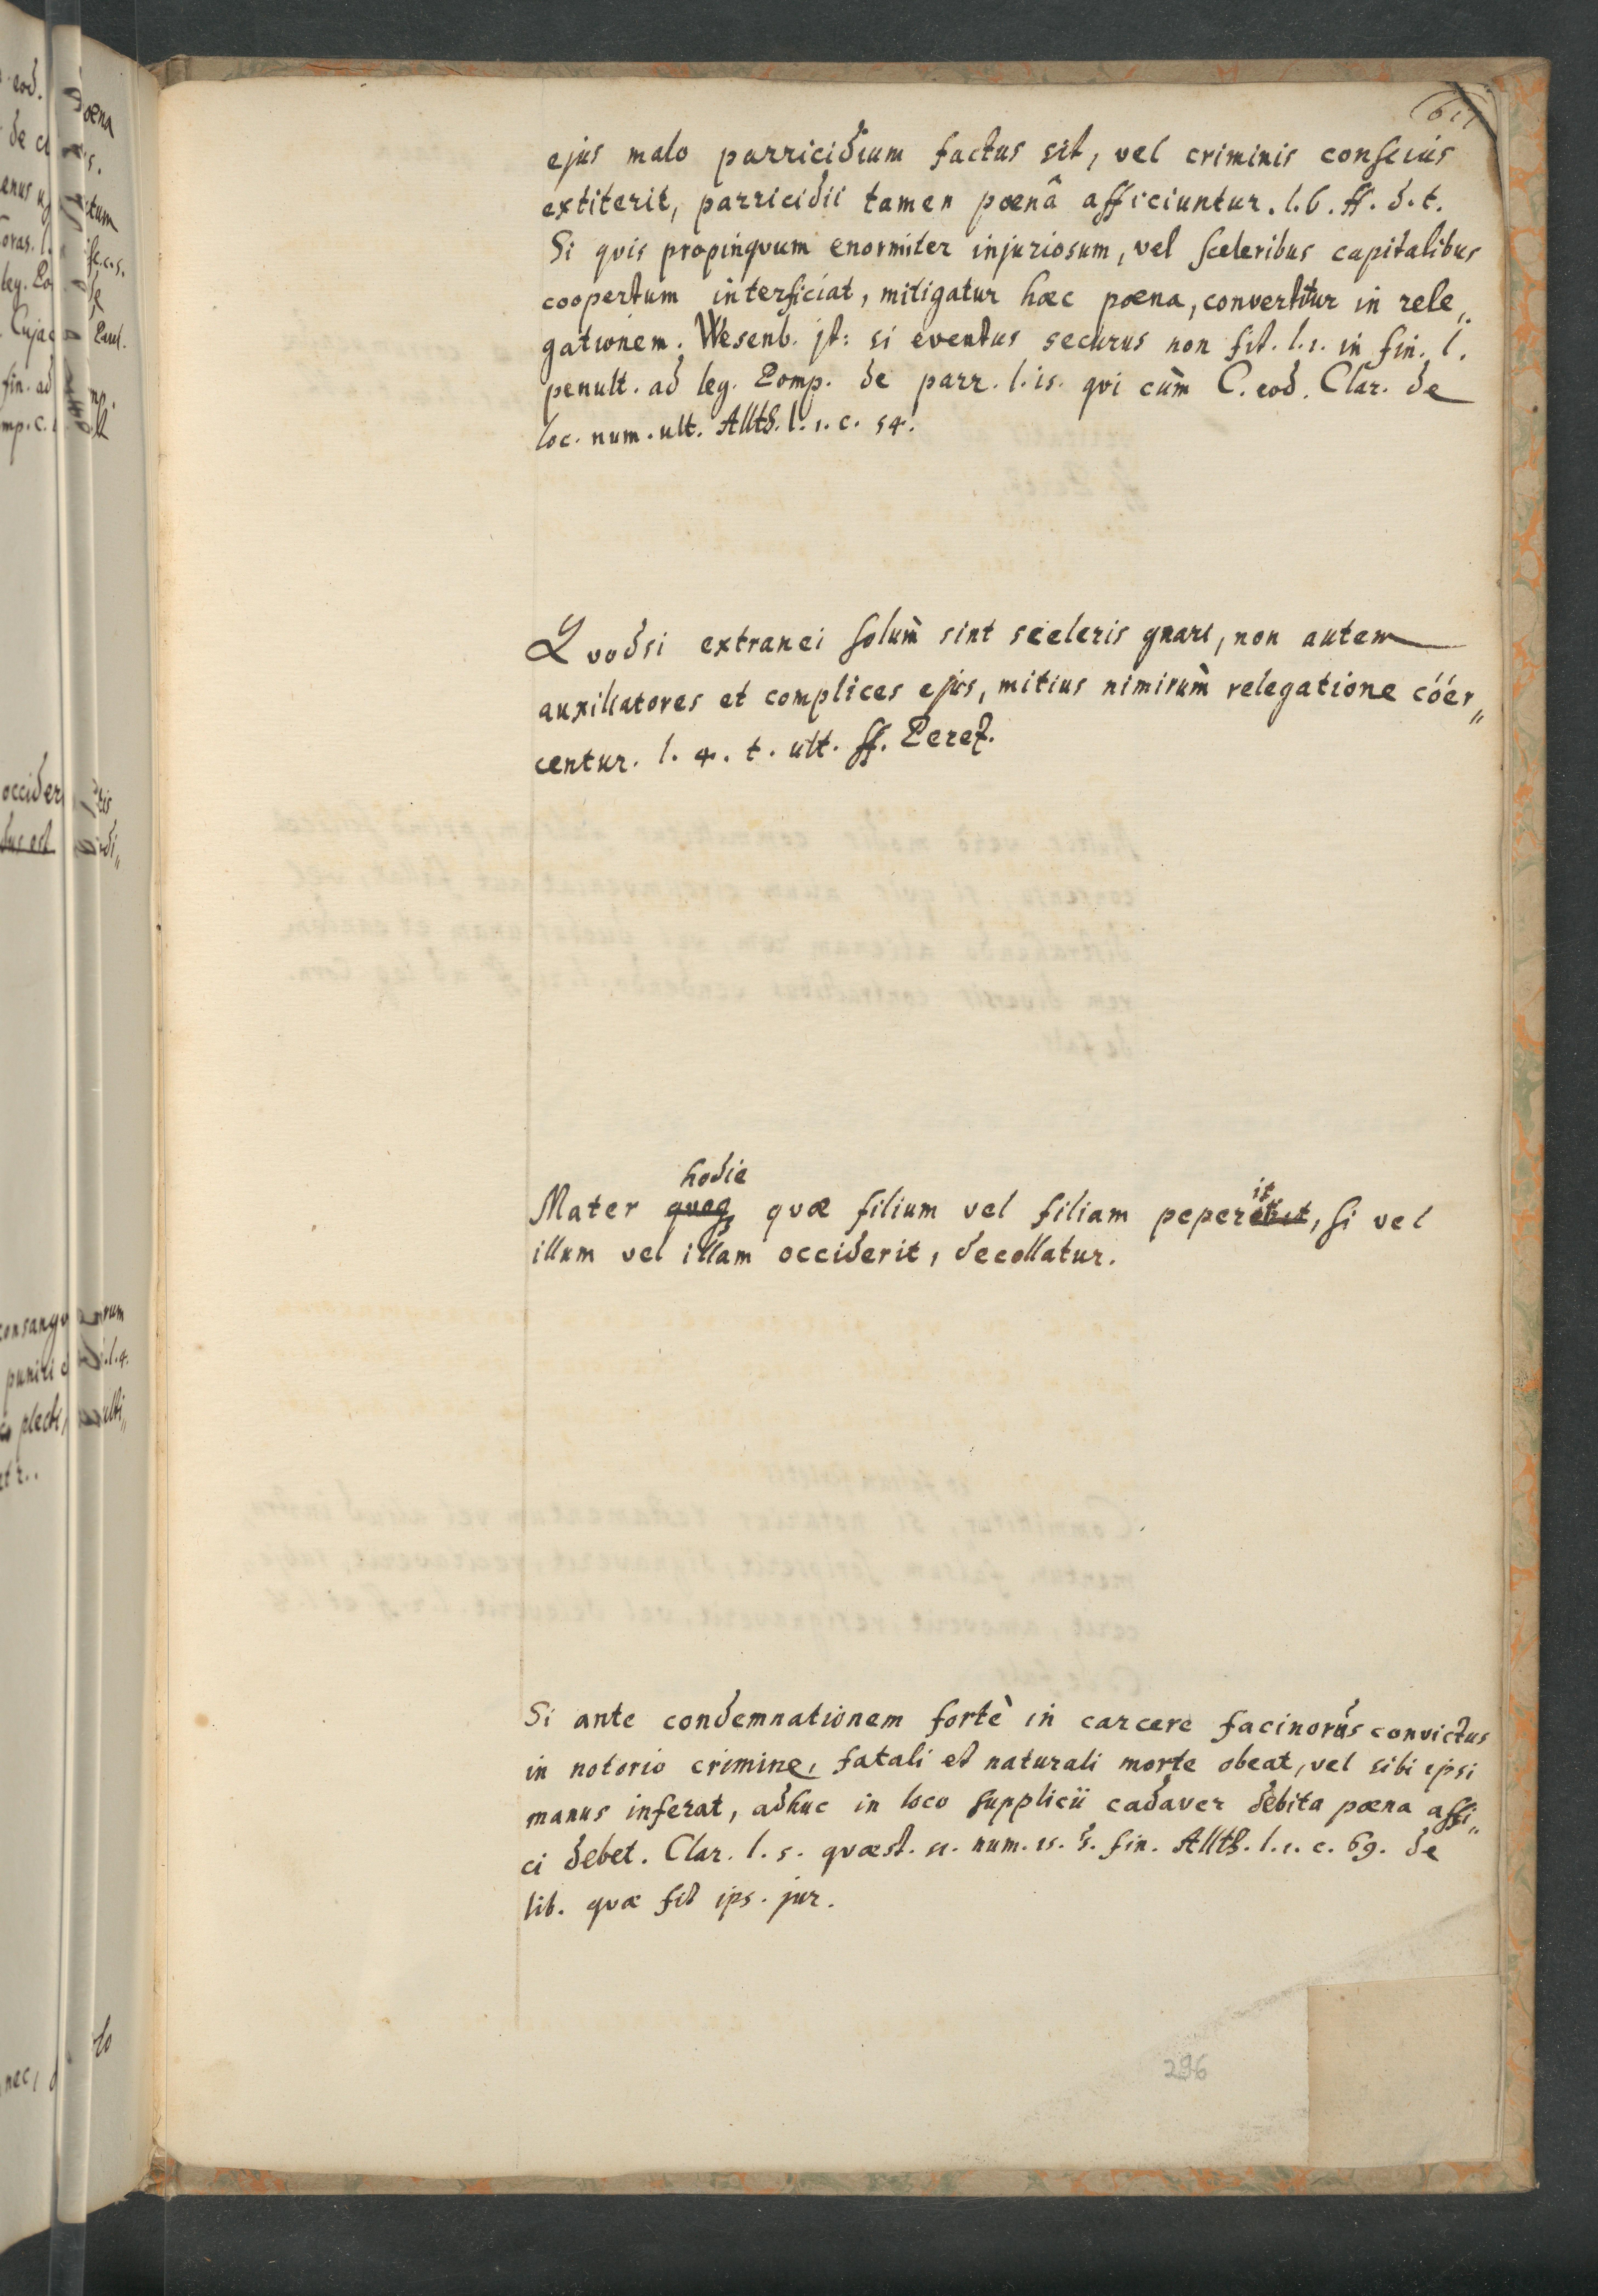 ejus malo parricidium factus sit, vel criminis conscius
extiterit, parricidii tamen pœnâ afficiuntur. l. 6. ff. d. t.
Si qvis propinqvum enormiter injuriosum, vel sceleribus capitalibus
coopertum interficiat, mitigatur hæc pœna, convertitur in rele„
gationem. Wesenb. jt: si eventus securus non sit. l. 1. in fin. l.
penult. ad leg. Pomp. de parr. l. is. qvi cùm C. eod. Clar. de
loc. num. ult. Allth. l. 1. c. 54.
Qvodsi extranei solùm sint sceleris gnari, non autem
auxiliatores et complices ejus, mitius nimirùm relegatione cóer„
centur. l. 4. t. ult. ff. Perez.
hodie
Mater qvoq; qvæ filium vel filiam pepererit, si vel
illum vel illam occiderit, decollatur.
Si ante condemnationem fortè in carcere facinorus convictus
in notorio crimine, fatali et naturali morte obeat, vel sibi ipsi
manus inferat, adhuc in loco supplicii cadaver debita pœna affi„
ci debet. Clar. l. 5. qvæst. 51. num. 15. §. fin. Allth. l. 1. c. 69. de
lib. qvæ fit ips. jur.
296